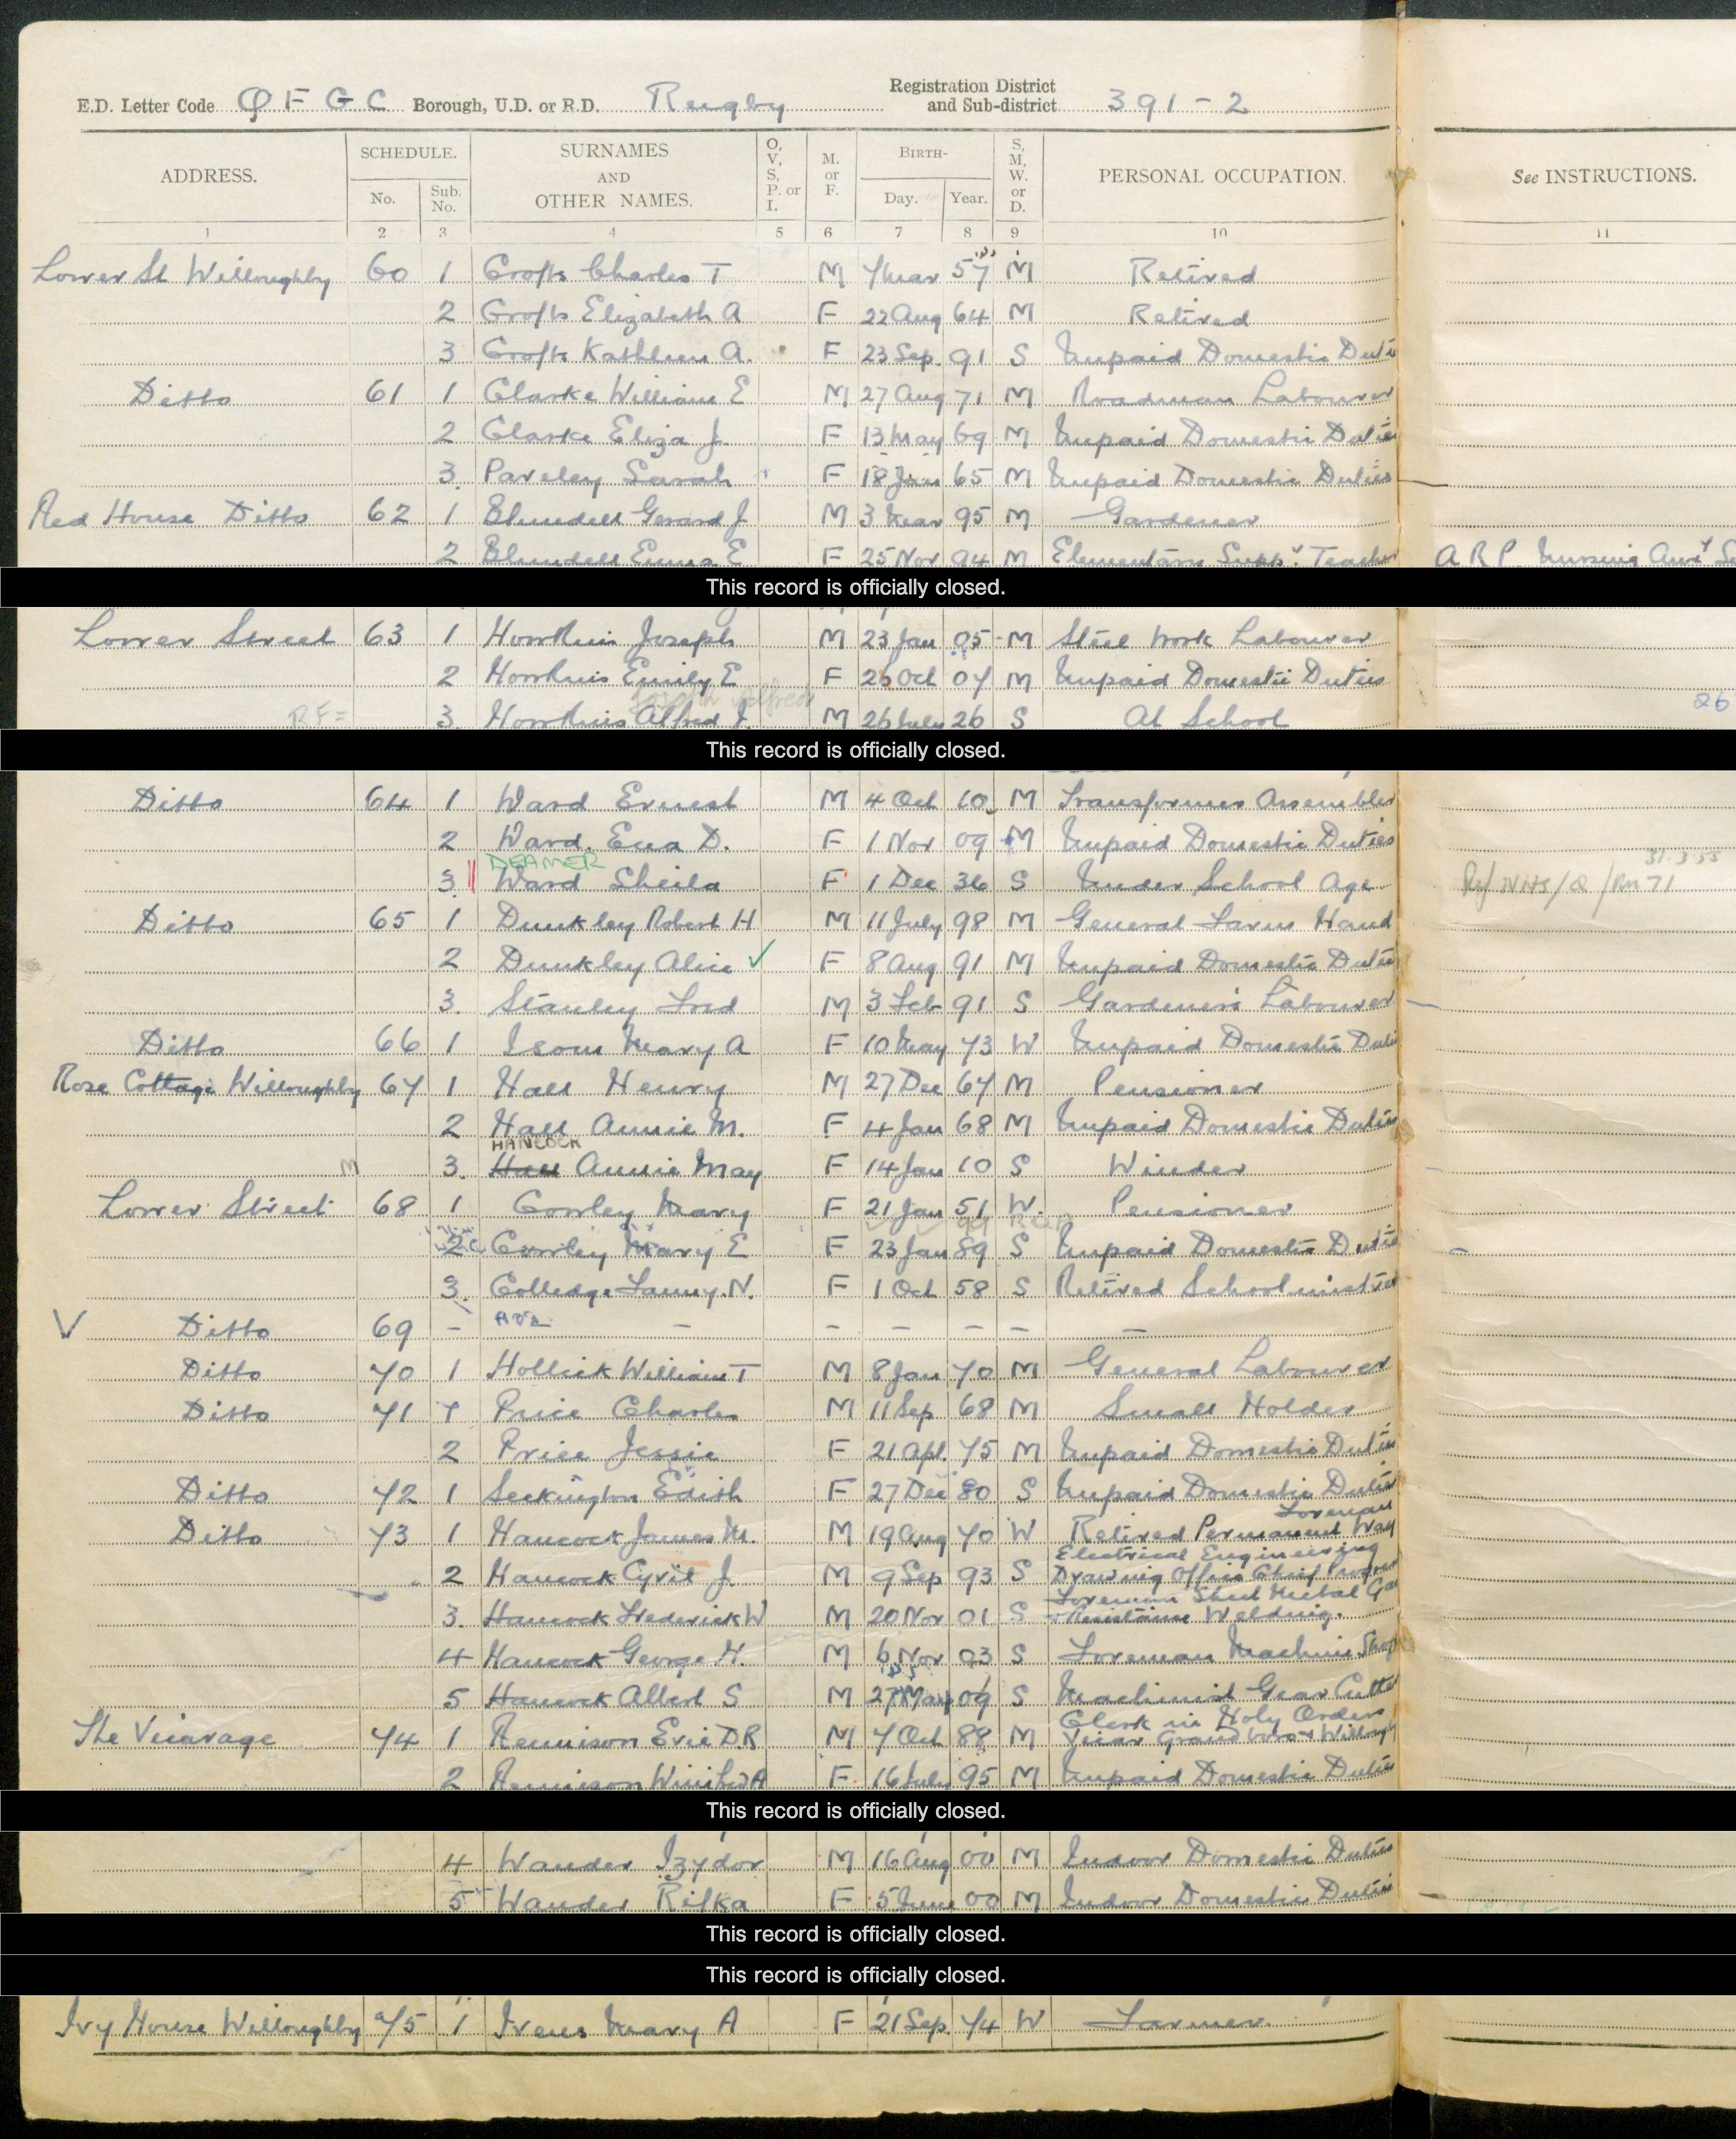 E.D. Letter Code QFGC Borough, U.D. or R.D. Rugby Registration District and Sub-district 391-2
ADDRESS. SCHEDULE. No. Sub. No. SURNAMES AND OTHER NAMES. O, V, S, P. or I. M. or F. BIRTH- Day. Year. S, M, W. or D. PERSONAL OCCUPATION. See INSTRUCTIONS.
1 2 3 4 5 6 7 8 9 10 11
Lower St Willoughby 60 1 Crofts Charles T M 7 Mar 57 M Retired
2 Crofts Elizabeth A F 22 Aug 64 M Retired
3 Crofts Kathleen A. F 23 Sep. 91 S Unpaid Domestic Duti
Ditto 61 1 Clarke William E M 27 Aug 71 M Roadman Labourer
2 Clarke Eliza J. F 13 May 69 M Unpaid Domestic Duties
3. Paveley Sarah F 18 Jan 65 M Unpaid Domestic Duties
Red House Ditto 62 1 Blundell Gerard J M 3 Mar 95 M Gardener
2 Blundell Emma E F 25 Nov 94 M Elementary Suppy Teacher A R P Nursing Auxy Se
This record is officially closed.
Lower Street 63 1 Howkins Joseph M 23 Jan 05 M Steel Work Labourer
2 Howkins Emily E F 26 Oct 07 M Unpaid Domestic Duties
Joseph Alfred
RF= 3. Howkins Alfred J. M 26 July 26 S At School 26
This record is officially closed.
Ditto 64 1 Ward Ernest M 4 Oct 10 M Transformer Assembler
2 Ward. Ena D. F 1 Nov 09 M Unpaid Domestic Duties
DEAMER 31-3-55
3 Ward Sheila F 1 Dec 36 S Under School Age
Ditto 65 1 Dunkley Robert H M 11 July 98 M General Farm Hand
2 Dunkley Alice ✓ F 8 Aug 91 M Unpaid Domestic Duties
3. Stanley Fred M 3 Feb 91 S Gardener's Labourer
Ditto 66 1 Isom Mary A F 10 May 73 W Unpaid Domestic Duti
Rose Cottage Willoughby 67 1 Hall Henry M 27 Dec 67 M Pensioner
2 Hall Annie M. F 4 Jan 68 M Unpaid Domestic Duties
HANCOCK
M 3. Hall Annie May F 14 Jan 10 S Winder
Lower Street 68 1 Cowley Mary F 21 Jan 51 W. Pensioner
2 Cowley Mary E F 23 Jan 89 S Unpaid Domestic Duties
3. Colledge Fanny. N. F 1 Oct 58 S Retired Schoolmistres
V Ditto 69 - - - - - - -
Ditto 70 1 Hollick William T M 8 Jan 70 M General Labourer
Ditto 71 1 Price Charles M 11 Sep 68 M Small Holder
2 Price Jessie F 21 Apl. 75 M Unpaid Domestic Duties
Ditto 72 1 Seckington Edith F 27 Dec 80 S Unpaid Domestic Duties
Foreman
Ditto 73 1 Hancock James M. M 19 Aug 70 W Retired Permanent Way
Electrical Engineering
2 Hancock Cyril J. M 9 Sep 93 S Drawing Office Chief
Foreman Sheet Metal
3. Hancock Frederick W M 20 Nov 01 S Resistance Welding.
4 Hancock George H. M 6 Nov 03 S Foreman Machine Shop
5 Hancock Albert S M 27 May 09 S Machinist Gear Cutter
Clerk in Holy Orders
The Vicarage 74 1 Rennison Eric D.R M 7 Oct 88 M Vicar Grandboro + Willough
2 Rennison Winifred A F. 16 July 95 M Unpaid Domestic Duties
This record is officially closed.
4 Wander Izydor M 16 Aug 00 M Indoor Domestic Duties
5 Wander Rifka F 5 June 00 M Indoor Domestic Duties
This record is officially closed.
This record is officially closed.
Ivy House Willoughby 75 1 Ivens Mary A F 21 Sep. 74 W Farmer